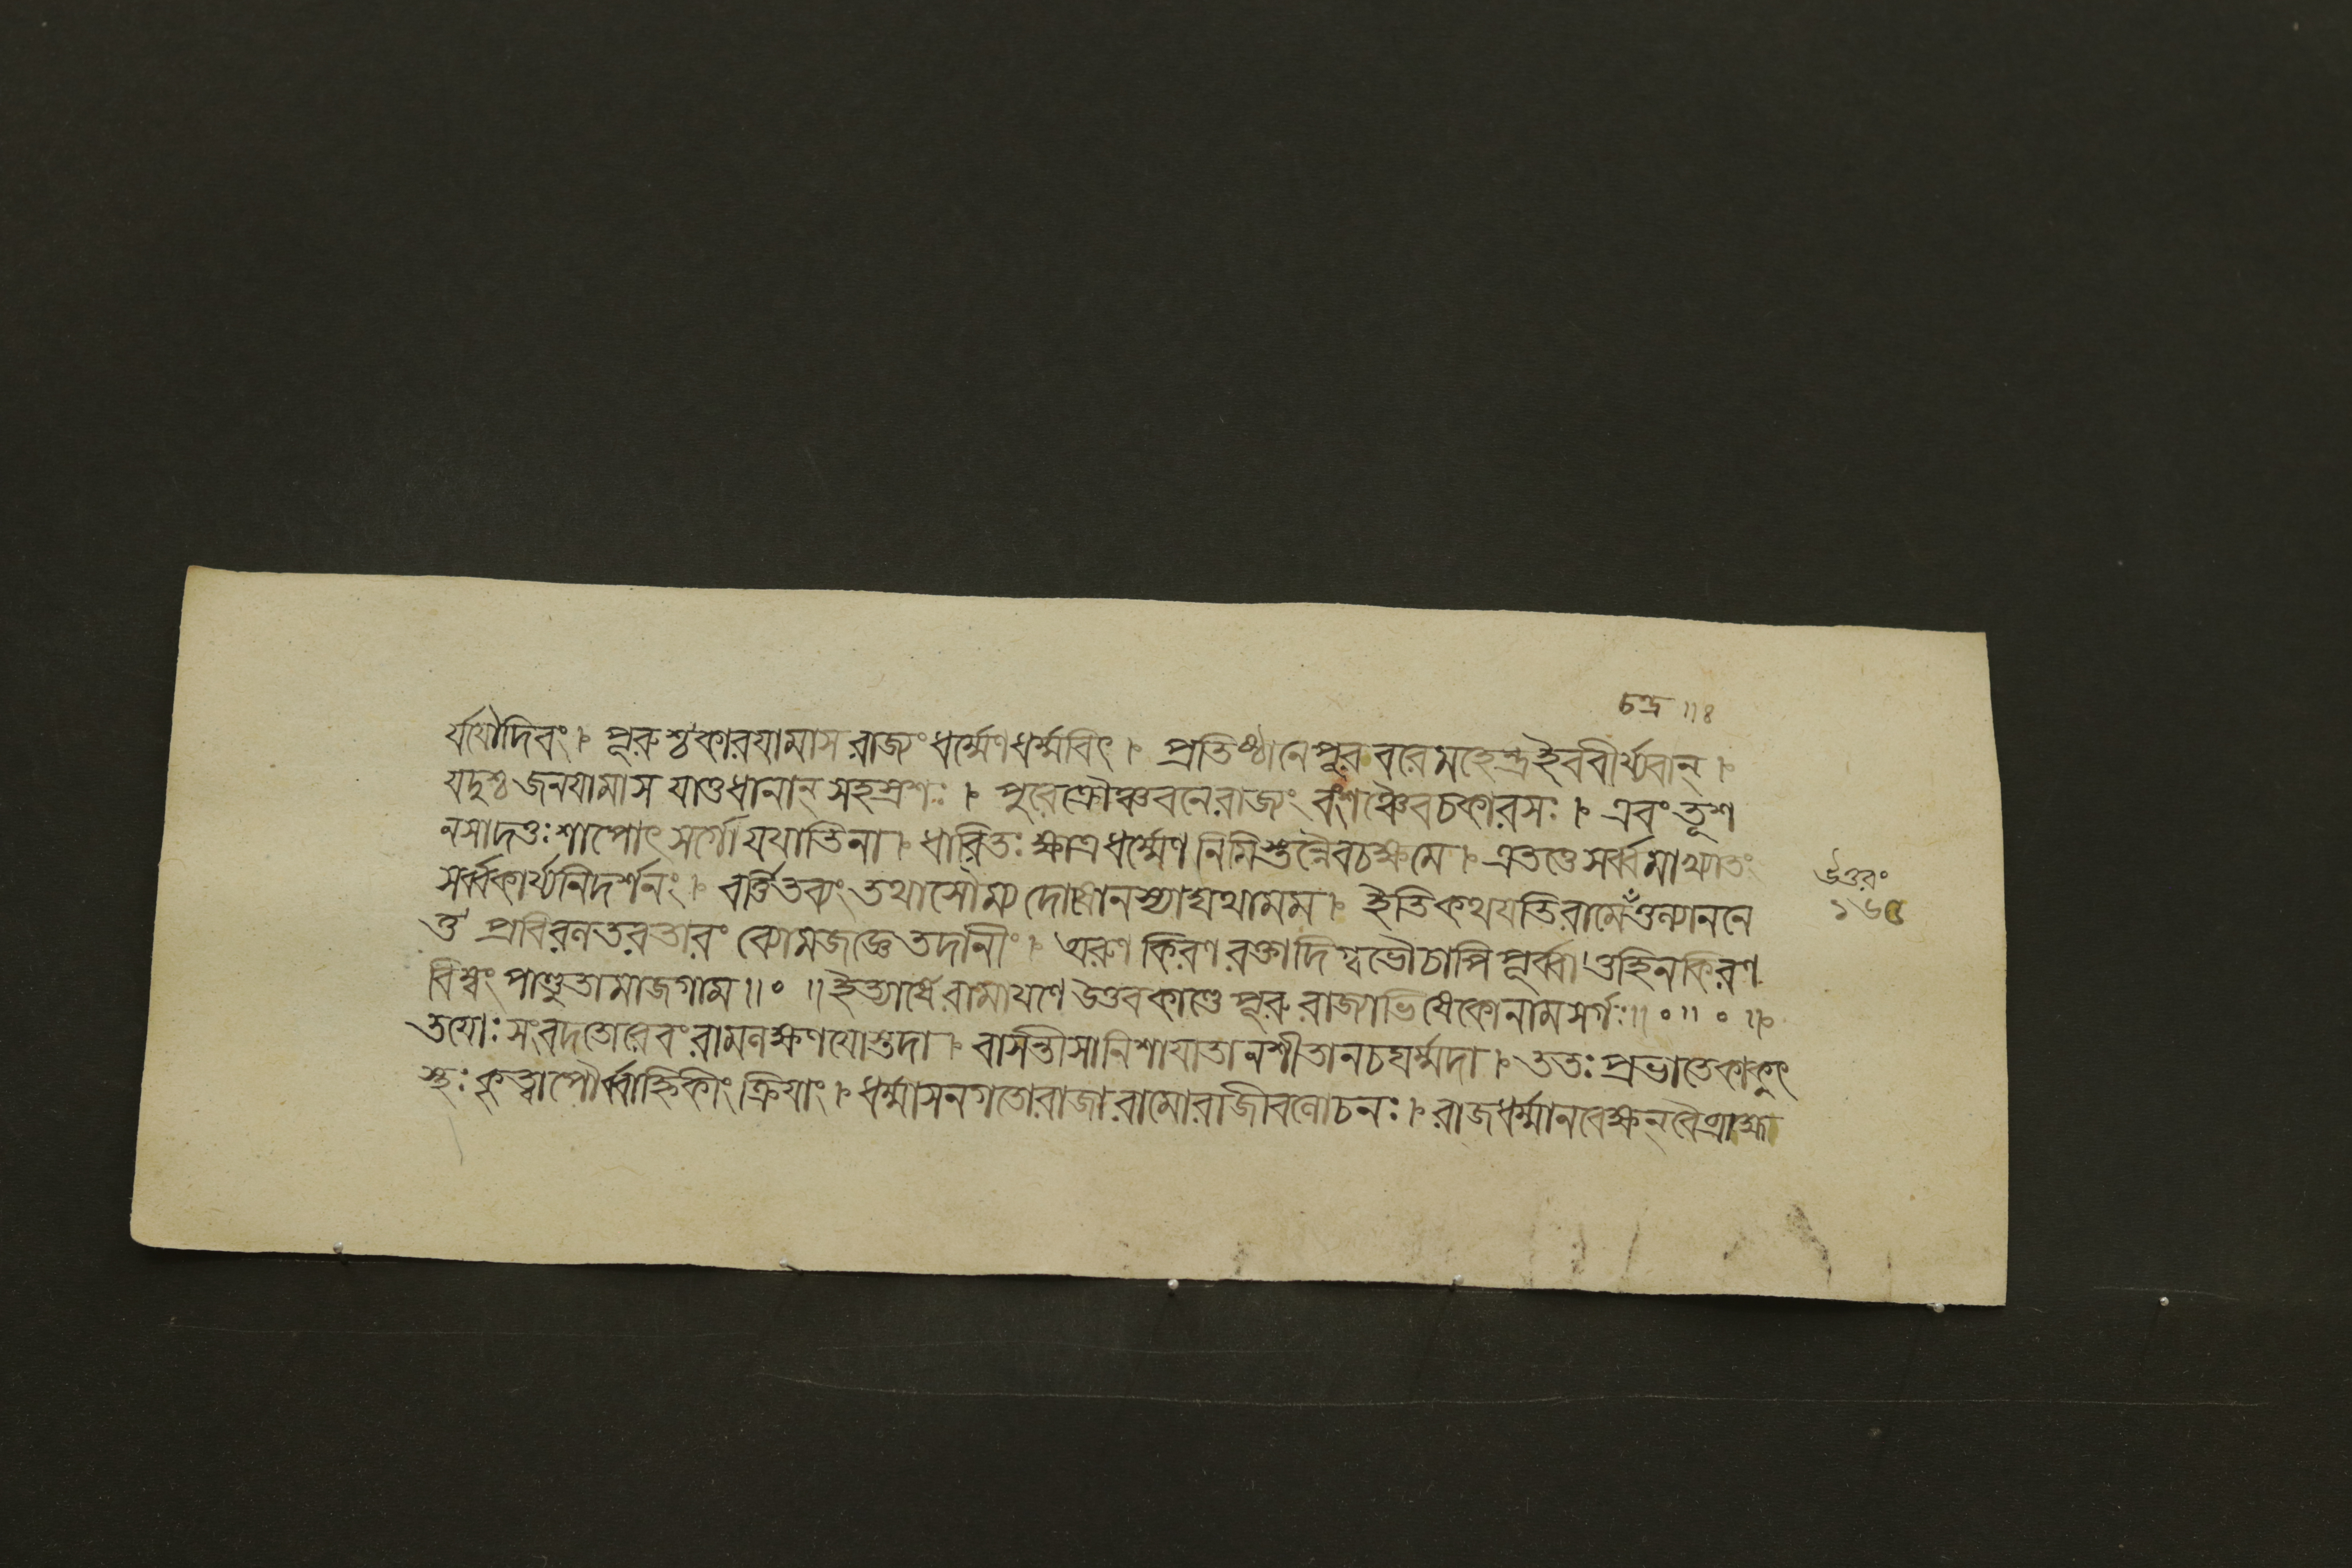 চন্দ্র ॥ ৪
র্যযৌদিবং । পূরুশ্চকারযামাস রাজ্যং ধর্ম্মেণ ধর্ম্মবিৎ । প্রতিষ্ঠানেপুরবরেমহেন্দ্রইববীর্য্যবান্ ।
যদুশ্চ জনযামাস যাতুধানান্ সহস্রশঃ । পুরেক্রৌঞ্চবনেরাজ্যং বংশঞ্চৈবচকারসঃ । এবংতূশ
নসাদত্তঃশাপোৎসর্গোযযাতিনা । ধারিতঃ ক্ষাত্রধর্ম্মেণ নিমিস্তুন্নৈবচক্ষমে । এতত্তেসর্ব্বমাখ্যাতং
সর্ব্বকার্য্যনিদর্শনং । বর্ত্তিতব্যং তথাসৌম্য দোষোনস্যাদ্যথামম । ইতিকথযতিরামেচন্দ্রতুল্যাননে
তু প্রবিরলতরতারং ব্যোমজজ্ঞে তদানীং । অরুণ কিরণ রক্তাদিগ্বভৌচাপি পূর্ব্বা তুহিনকিরণ
বিম্বং পাণ্ডুতামাজগাম ॥ ০ ॥ ইত্যার্ষে রামাযণে উত্তরকাণ্ডে পূরু রাজ্যাভিষেকোনামসর্গঃ ॥ ০ ॥ ০ ॥
তযোঃ সংবদতোরেবং রামলক্ষণযোস্তদা । বাসন্তীসানিশাযাতানশীতানচঘর্ম্মদা । ততঃ প্রভাতেকাকুৎ
স্থঃ কৃত্বাপৌর্ব্বাহ্নিকীং ক্রিযাং । ধর্ম্মাসনগতোরাজারামোরাজীবলোচনঃ । রাজধর্ম্মানবেক্ষন্বৈব্রাহ্ম
উত্তরং
১৬৫